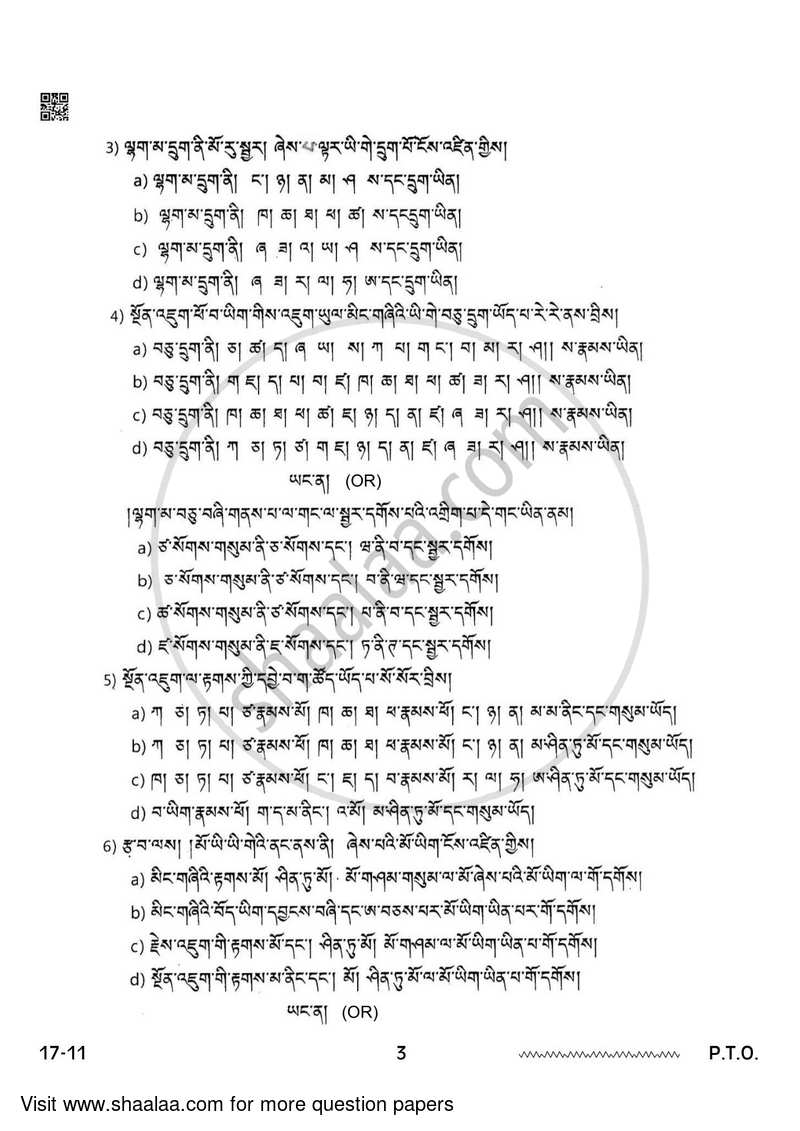 3) ལྷག་མ་དྲུག་ནི་མོ་རུ་སྦྱར། ཞེས་པ་ལྟར་ཡི་གེ་དྲུག་པོ་ངོས་འཛིན་གྱིས།
a) ལྷག་མ་དྲུག་ནི། ང་། ཉ། ན། མ། ཤ ས་དང་དྲུག་ཡིན།
b) ལྷག་མ་དྲུག་ནི། ཁ། ཆ། ཐ། ཕ། ཚ། ས་དང་དྲུག་ཡིན།
c) ལྷག་མ་དྲུག་ནི། ཞ ཟ། འ། ཡ། ཤ ས་དང་དྲུག་ཡིན།
d) ལྷག་མ་དྲུག་ནི། ཞ ཟ། ར། ལ། ཧ། ཨ་དང་དྲུག་ཡིན།
4) སྔོན་འཇུག་ཕོ་བ་ཡིག་གིས་འཇུག་ཡུལ་མིང་གཞིའི་ཡི་གེ་བཅུ་དྲུག་ཡོད་པ་རེ་རེ་ནས་བྲིས།
a) བཅུ་དྲུག་ནི། ཅ། ཚ། ད། ཞ ཡ། ས། ཀ པ། ག ང་། བ། མ། ར། ཤ།། ས་རྣམས་ཡིན།
b) བཅུ་དྲུག་ནི། ག ཇ། ད། པ། བ། ཛ། ཁ། ཆ། ཐ། ཕ། ཚ། ཟ། ར། ཤ།། ས་རྣམས་ཡིན།
c) བཅུ་དྲུག་ནི། ཁ། ཆ། ཐ། ཕ། ཚ། ཇ། ཉ། ད། ན། ཛ། ཞ ཟ། ར། ཤ།། ས་རྣམས་ཡིན།
d) བཅུ་དྲུག་ནི། ཀ ཅ། ཏ། ཙ། ག ཇ། ཉ། ད། ན། ཛ། ཞ ཟ། ར། ཤ།། ས་རྣམས་ཡིན།
ཡང་ན། (OR)
།ལྷག་མ་བཅུ་བཞི་གནས་པ་ལ་གང་ལ་སྦྱར་དགོས་པའི་འགྲིག་པ་དེ་གང་ཡིན་ནམ།
a) ཙ་སོགས་གསུམ་ནི་ཅ་སོགས་དང་། ཝ་ནི་བ་དང་སྦྱར་དགོས།
b) ཅ་སོགས་གསུམ་ནི་ཙ་སོགས་དང་། བ་ནི་ཝ་དང་སྦྱར་དགོས།
c) ཚ་སོགས་གསུམ་ནི་ཙ་སོགས་དང་། པ་ནི་བ་དང་སྦྱར་དགོས།
d) ཛ་སོགས་གསུམ་ནི་ཇ་སོགས་དང་། ཏ་ནི་ད་དང་སྦྱར་དགོས།
5) སྔོན་འཇུག་ལ་རྟགས་ཀྱི་དབྱེ་བ་ག་ཚོད་ཡོད་པ་སོ་སོར་བྲིས།
a) ཀ ཅ། ཏ། པ། ཙ་རྣམས་མོ། ཁ། ཆ། ཐ། ཕ་རྣམས་ཕོ། ང་། ཉ། ན། མ་མ་ནིང་དང་གསུམ་ཡོད།
b) ཀ ཅ། ཏ། པ། ཙ་རྣམས་ཕོ། ཁ། ཆ། ཐ། ཕ་རྣམས་ཕོ། ང་། ཉ། ན། མ་ཤིན་ཏུ་མོ་དང་གསུམ་ཡོད།
c) ཁ། ཅ། ཏ། པ། ཙ་རྣམས་ཕོ། ང་། ཇ། ད། བ་རྣམས་མོ། ར། ལ། ཧ། ཨ་ཤིན་ཏུ་མོ་དང་གསུམ་ཡོད།
d) བ་ཡིག་རྣམས་ཕོ། ག་ད་མ་ནིང་། འ་མོ། མ་ཤིན་ཏུ་མོ་དང་གསུམ་ཡོད།
6) རྩ་བ་ལས། །མོ་ཡི་ཡི་གེའི་ནང་ནས་ནི། ཞེས་པའི་མོ་ཡིག་ངོས་འཛིན་གྱིས།
a) མིང་གཞིའི་རྟགས་མོ། ཤིན་ཏུ་མོ། མོ་གཤམ་གསུམ་ལ་མོ་ཞེས་པའི་མོ་ཡིག་ལ་གོ་དགོས།
b) མིང་གཞིའི་བོད་ཡིག་དབྱངས་བཞི་དང་ཨ་བཅས་པར་མོ་ཡིག་ཡིན་པར་གོ་དགོས།
c) རྗེས་འཇུག་གི་རྟགས་མོ་དང་། ཤིན་ཏུ་མོ། མོ་གཤམ་ལ་མོ་ཡིག་ཡིན་པ་གོ་དགོས།
d) སྔོན་འཇུག་གི་རྟགས་མ་ནིང་དང་། མོ། ཤིན་ཏུ་མོ་ལ་མོ་ཡིག་ཡིན་པ་གོ་དགོས།
ཡང་ན། (OR)
17-11 3 P.T.O.
shaalaa.com
Visit www.shaalaa.com for more question papers